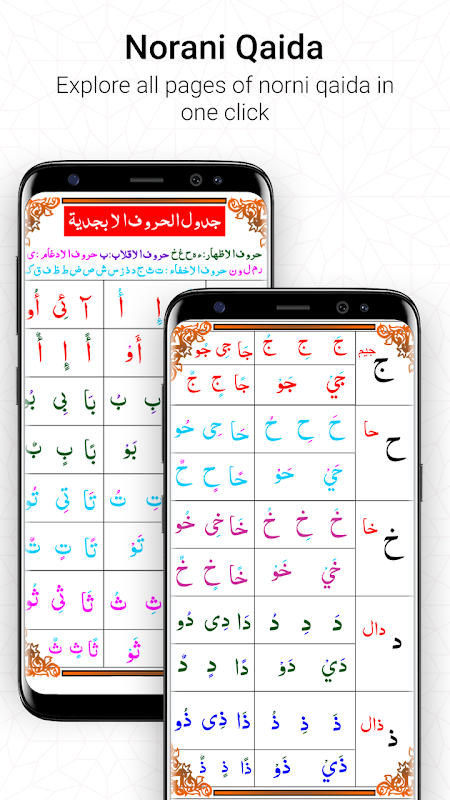 Norani Qaida
Explore all pages of norni qaida in
one click
جدول الحروف الابجدية
حروف الاظهار: ء ه ح ع خ حروف الاقلاب: ب حروف الادغام: ي
ر م ل و ن حروف الاخفاء: ت ث ج د ذ ز س ش ص ض ط ظ ف ق ك
إِ أُ آ ئِي أُو
أَوْ أً إٍ أٌ
بِ بُ بَا بِي بُو
بَوْ بًا بٍ بٌ
تِ تُ تَا تِي تُو
تَوْ تًا تٍ تٌ
ثِ ثُ ثَا ثِي ثُو
ثَوْ ثًا ثٍ ثٌ
ج جيم جَ جِ جُ جَا جِي جُو
جَيْ جَوْ جًا جٍ جٌ
ح حا حَ حِ حُ حَا حِي حُو
حَيْ حَوْ حًا حٍ حٌ
خ خا خَ خِ خُ خَا خِي خُو
خَيْ خَوْ خًا خٍ خٌ
د دال دَ دِ دُ دَا دِي دُو
دَيْ دَوْ دًا دٍ دٌ
ذ ذال ذَ ذِ ذُ ذَا ذِي ذُو
ذَيْ ذَوْ ذًا ذٍ ذٌ